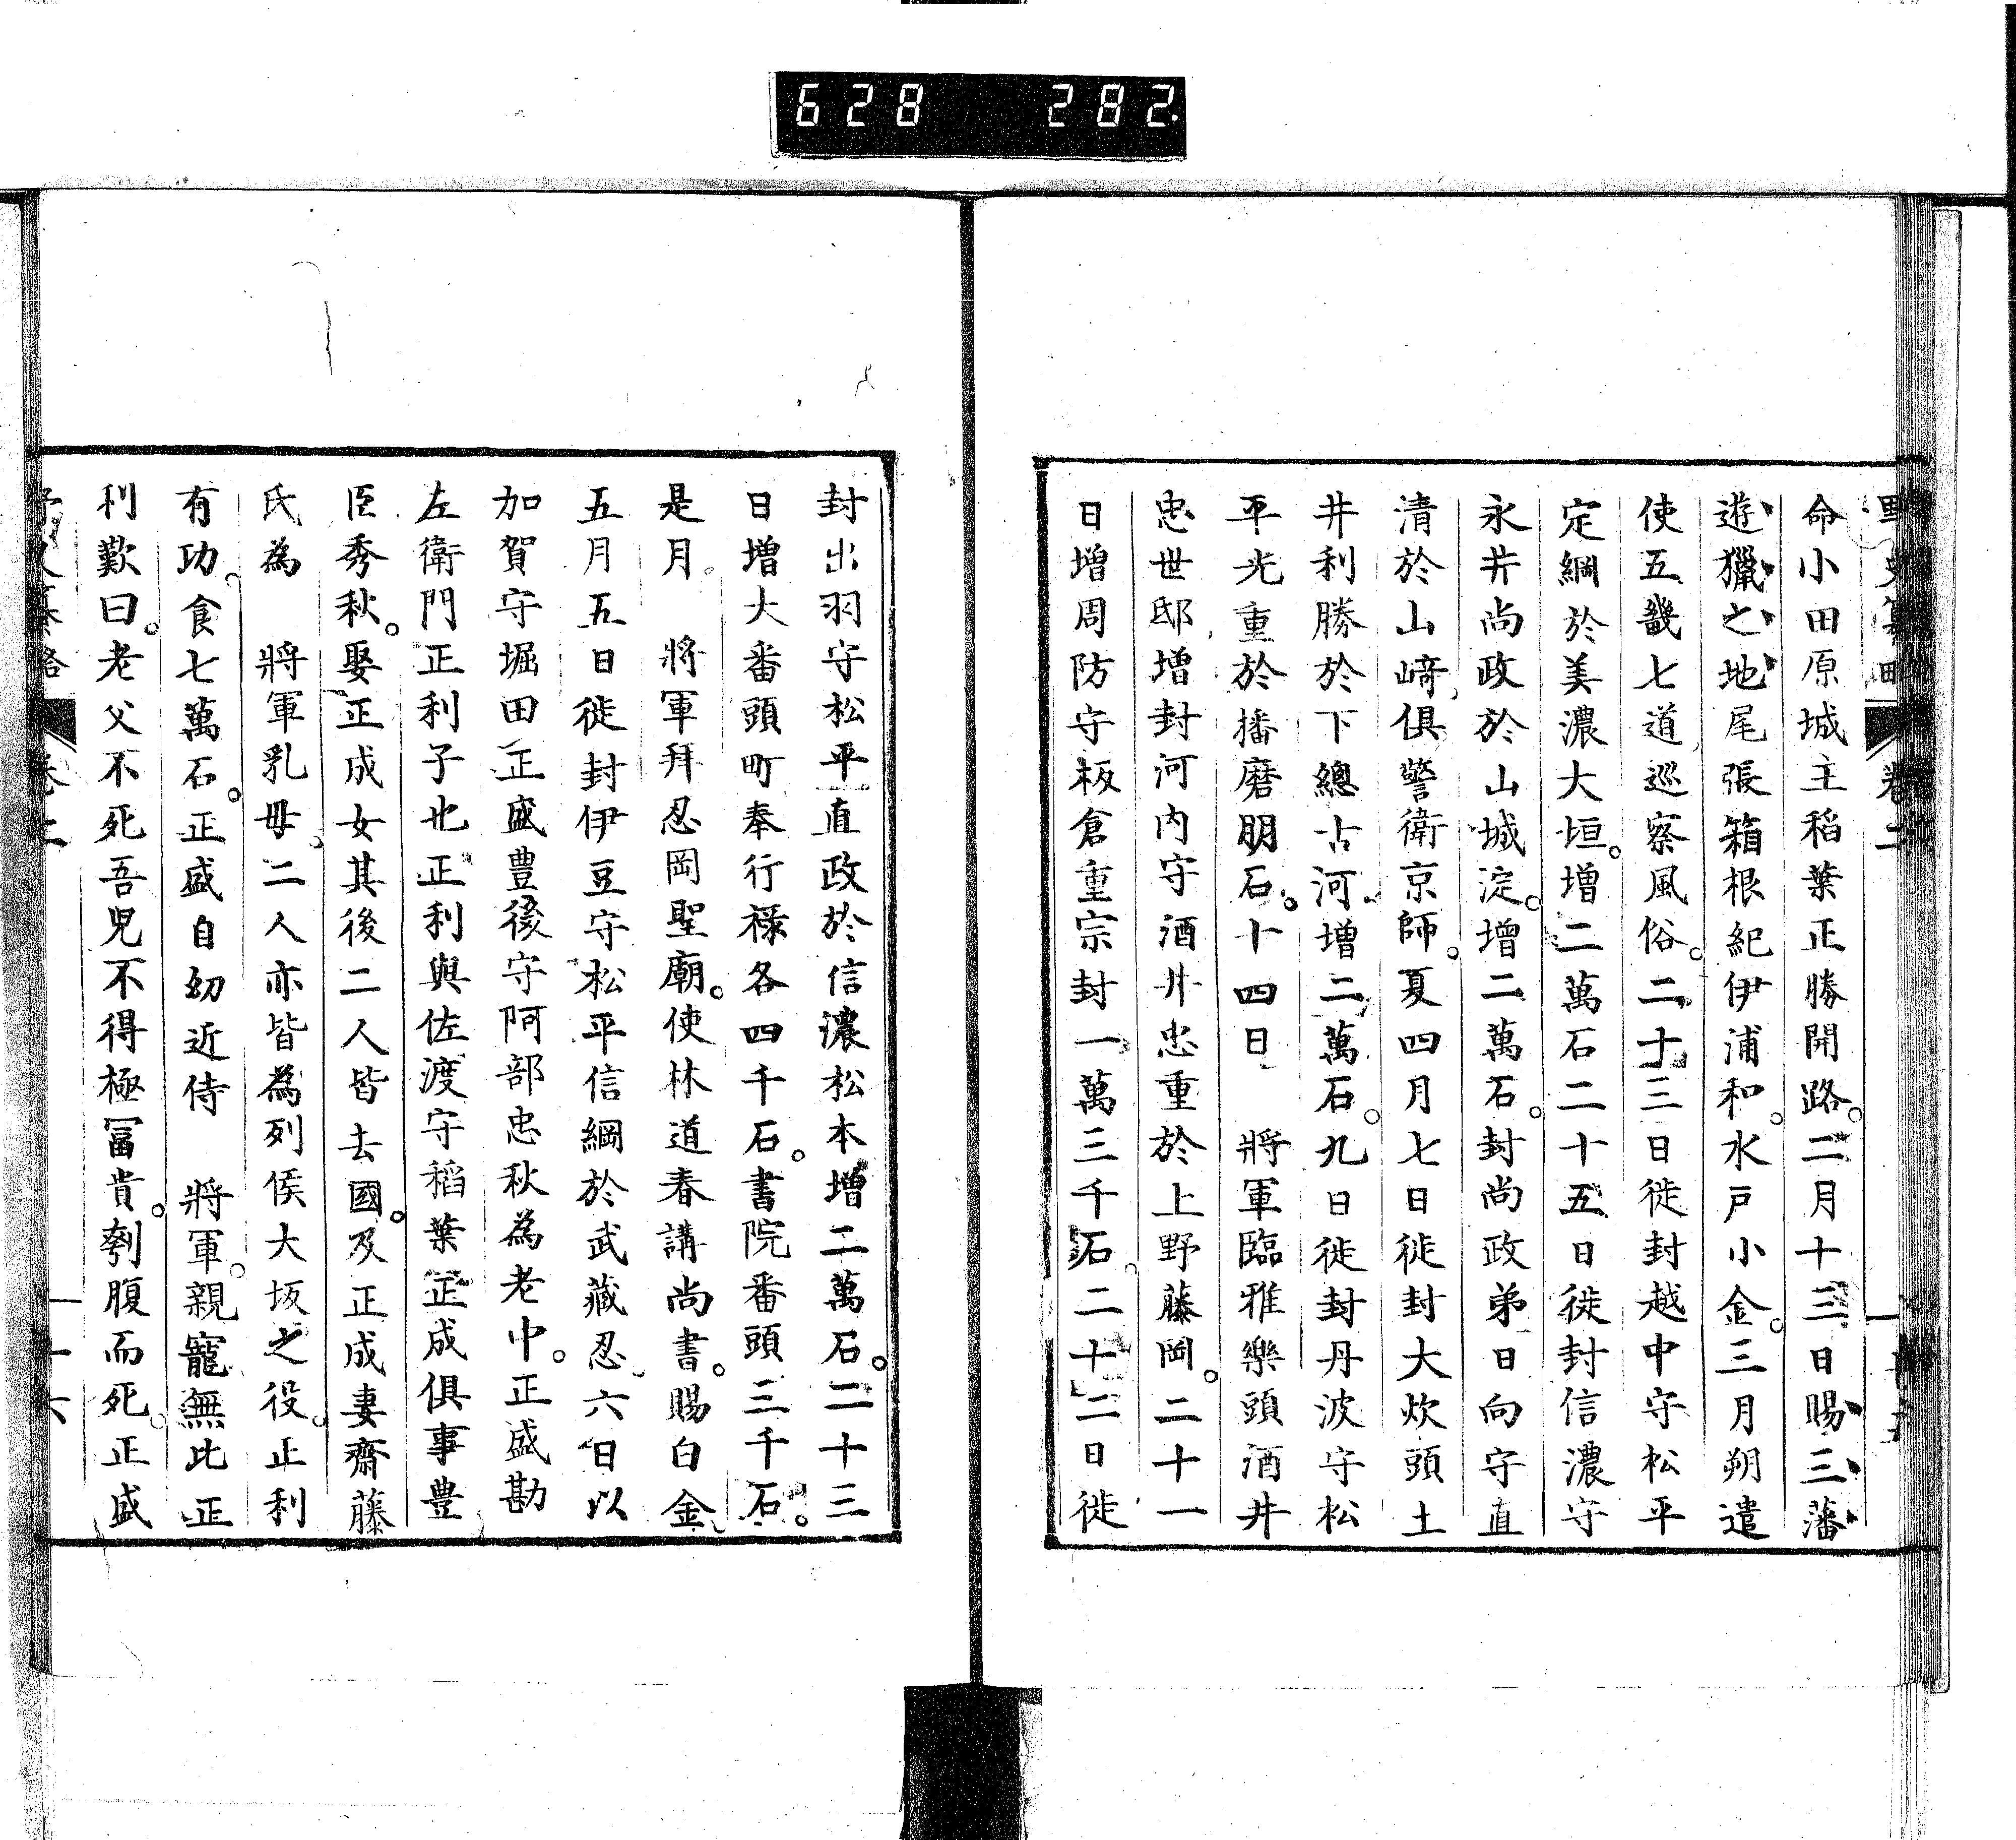 628 282.
命小田原城主稻葉正勝開路。二月十三日賜三藩
遊獵之地尾張箱根紀伊浦和。水戸小金。三月朔遣
使五畿七道巡察風俗。二十三日徙封越中守松平
定綱於美濃大垣。增二萬石二十五日徙封信濃守
永井尚政於山城淀。增二萬石。封尚政弟日向守直
清於山﨑俱警衛京師。夏四月七日徙封大炊頭土
井利勝於下總古河增二萬石。九日徙封丹波守松
平光重於播磨明石。十四日　將軍臨雅樂頭酒井
忠世邸增封河内守酒井忠重於上野藤岡。二十一
日增周防守板倉重宗封一萬三千石。二十二日徙
封出羽守松平直政於信濃松本增二萬石。二十三
日增大番頭町奉行祿各四千石。書院番頭三千石。
是月。將軍拜忍岡聖廟。使林道春講尚書。賜白金
五月五日徙封伊豆守松平信綱於武藏忍六日以
加賀守堀田正盛豊後守阿部忠秋為老中。正盛勘
左衛門正利子也正利與佐渡守稻葉正成俱事豊
臣秀秋。娶正成女其後二人皆去國。及正成妻齋藤
氏為　將軍乳母。二人亦皆為列侯大坂之役。正利
有功。食七萬石。正盛自幼近侍　將軍。親寵無比正
利歎曰。老父不死吾兒不得極冨貴。刳腹而死。正盛
卷二